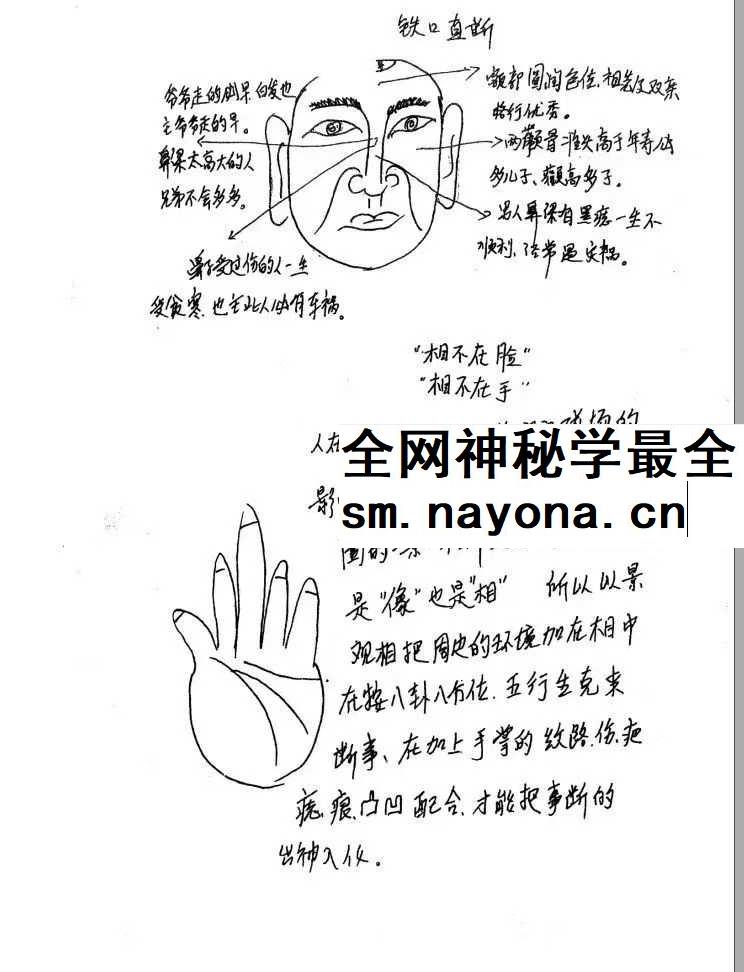 铁口直断
爷爷走的例早白发也
主爷爷走的早。
鼻梁太高大的人
兄弟不会多多。
受过伤的人一生
受贫寒.也主此人必有车祸。
额部圆润色佳.相差父双亲
略行优秀。
两颧骨准头高于年寿必
多儿子、颧高多子。
男人鼻梁有黑痣一生不
顺利.经常遇灾祸。
"相不在脸"
"相不在手"
人在
全网神秘学最全
sm.nayona.cn
是"像"也是"相" 所以以景
观相把周边的环境加在相中
在按八卦八方位.五行生克来
断事、在加上手掌的纹路.伤.疤
痣.痕.凸凹配合.才能把事断的
出神入化。